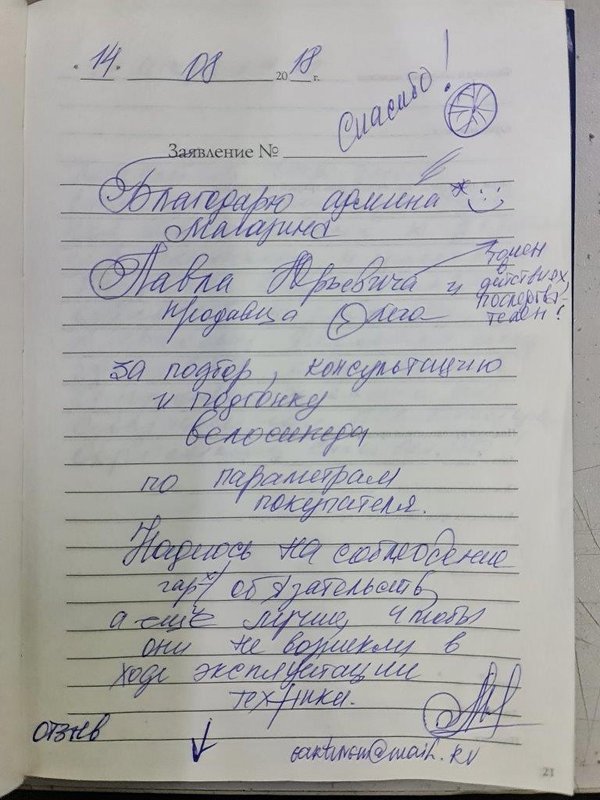 « 14 » 08 2018 г.
Спасибо!
Заявление №
Благодарю админа
Магазина
Павла Юрьевича и
точен в действиях,
продавца Олега
за подбор, консультацию
и подгонку
велосипеда
по параметрам
покупателя.
Надеюсь на соблюдение
гар-х обязательств,
а ещё лучше, чтобы
они не возникли в
ходе эксплуатации
техники.
отзыв
21